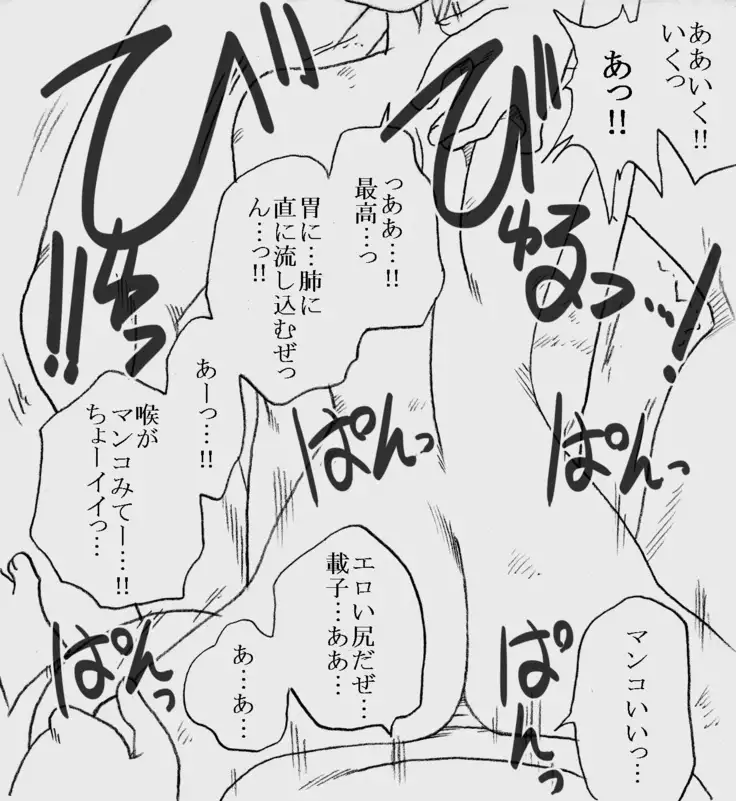 ああいく!!
いくっ
あっ!!
びゅるっ…!
びちっ!!
っああ…!!
最高…っ
胃に…肺に
直に流し込むぜっ
ん…っ!!
あーっ…!!
喉が
マンコみてー…!!
ちょーイイっ…
ぱんっ
ぱんっ
エロい尻だぜ…
載子…ああ…
あ…あ…
マンコいいっ…
ぱんっ
ぱんっ